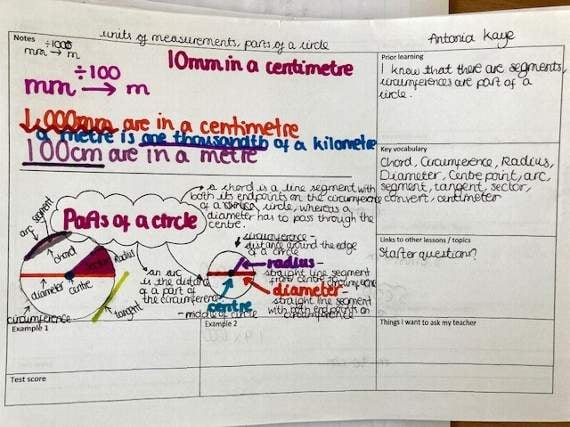 Notes
units of measurements, parts of a circle
Antonia Kaye
÷1000
mm → m
10mm in a centimetre
÷100
mm → m
1,000mm are in a centimetre
a metre is one thousandth of a kilometre
100cm are in a metre
Parts of a circle
a chord is a line segment with
both its endpoints on the circumference
of a circle, whereas a
diameter has to pass through the
centre.
arc
segment
chord
sector
radius
diameter
centre
circumference
tangent
an arc
is the distance
of a part of
the circumference
circumference -
distance around the edge
of a circle
radius -
straight line segment
from centre to
circumference
diameter -
straight line segment
with both endpoints on
circumference
centre
- middle of circle
Prior learning
I know that there are segments,
circumferences are part of a
circle.
Key vocabulary
Chord, Circumference, Radius,
Diameter, Centre point, arc,
segment, tangent, sector,
convert, centimeter
Links to other lessons / topics
Starter questions?
Example 1
Example 2
Things I want to ask my teacher
Test score